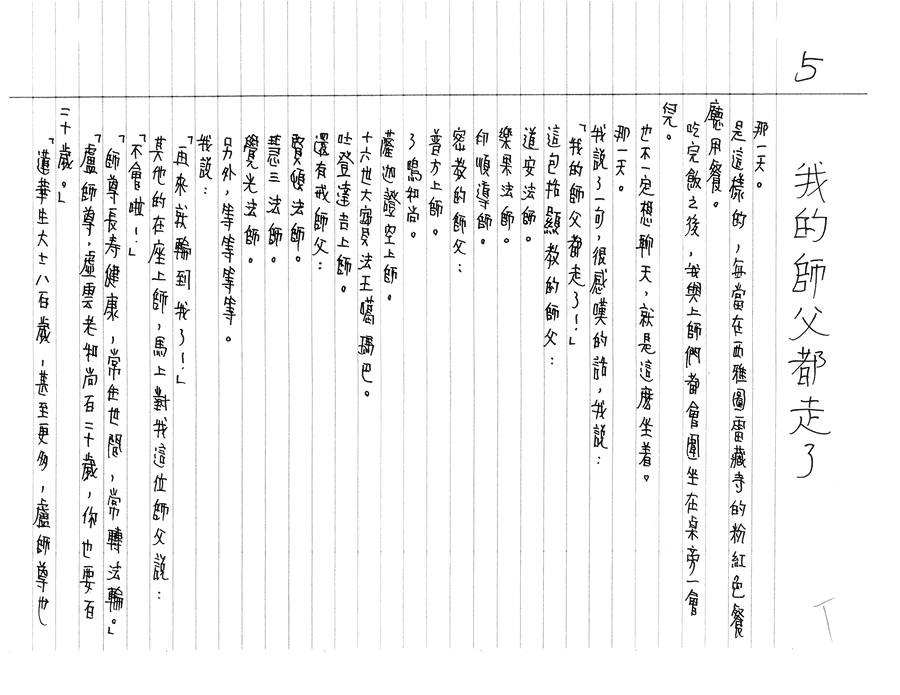 5
我的師父都走了
那一天。
是這樣的，每當在西雅圖雷藏寺的粉紅色餐
廳用餐。
吃完飯之後，我與上師們都會圍坐在桌旁一會
兒。
也不一定想聊天，就是這麼坐着。
那一天。
我說了一句，很感嘆的話，我說：
「我的師父都走了！」
這包括顯教的師父：
道安法師。
樂果法師。
印順導師。
密教的師父：
普方上師。
了鳴和尚。
薩迦證空上師。
十六世大寶法王噶瑪巴。
吐登達吉上師。
還有戒師父：
賢頓法師。
慧三法師。
覺光法師。
另外，等等等等。
我說：
「再來就輪到我了！」
其他的在座上師，馬上對我這位師父說：
「不會啦！」
「師尊長寿健康，常住世間，常轉法輪。」
「盧師尊，虛雲老和尚百二十歲，你也要百
二十歲。」
「蓮華生大士八百歲，甚至更多，盧師尊也